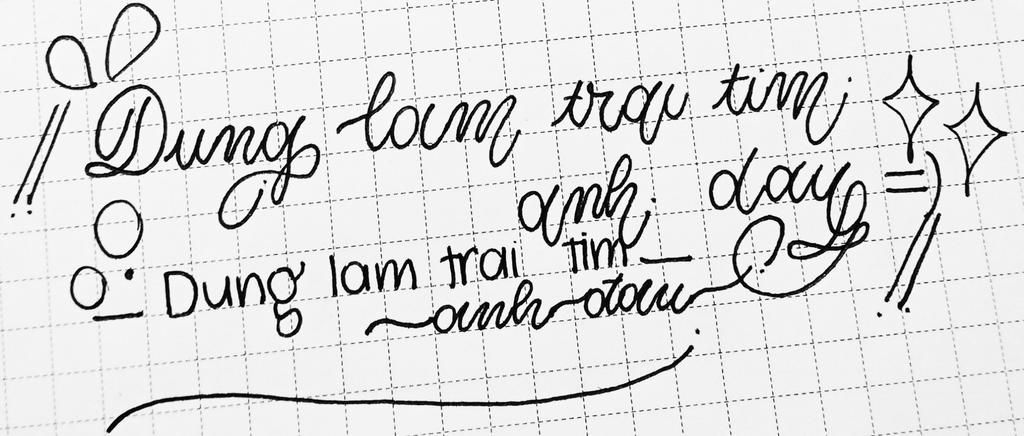 Dung lam trai tim
anh day =)
Dung lam trai tim
anh dau